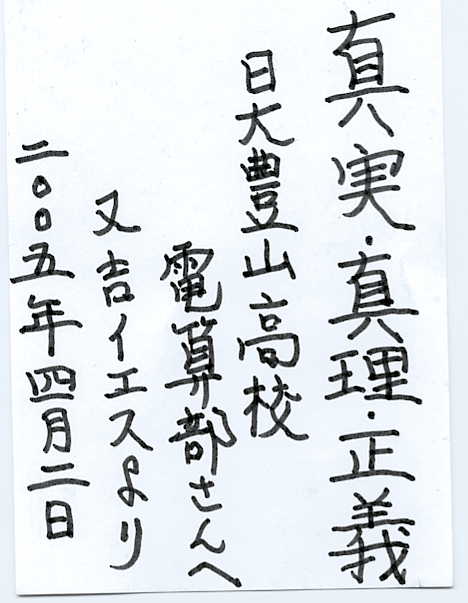 真実・真理・正義
日大豊山高校
電算部さんへ
又吉イエスより
二〇〇五年四月二日